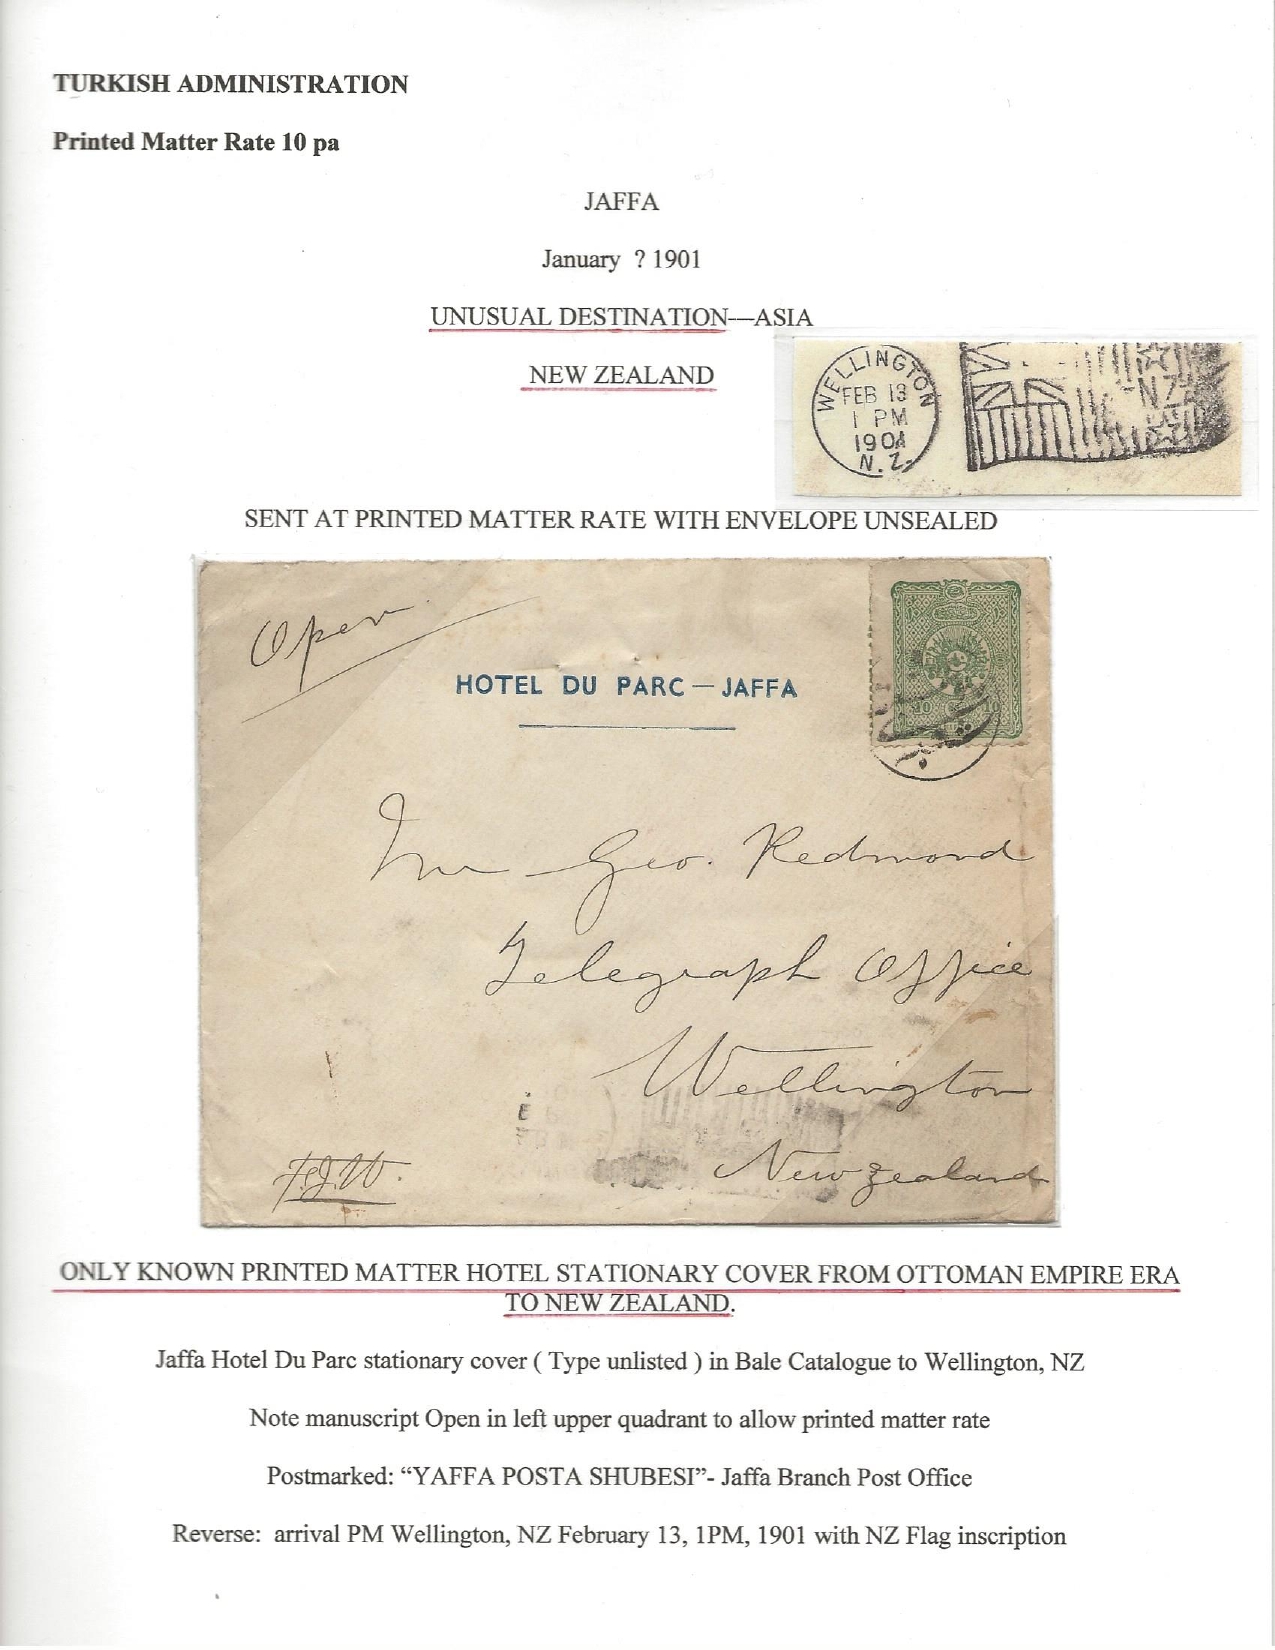 TURKISH ADMINISTRATION
Printed Matter Rate 10 pa
JAFFA
January ? 1901
UNUSUAL DESTINATION—ASIA
NEW ZEALAND
WELLINGTON
FEB 13
1 PM
1901
N.Z.
NZ
SENT AT PRINTED MATTER RATE WITH ENVELOPE UNSEALED
Open
HOTEL DU PARC — JAFFA
10 10
Mr Geo. Redmond
Telegraph Office
Wellington
New Zealand
F.J.W.
ONLY KNOWN PRINTED MATTER HOTEL STATIONARY COVER FROM OTTOMAN EMPIRE ERA
TO NEW ZEALAND.
Jaffa Hotel Du Parc stationary cover ( Type unlisted ) in Bale Catalogue to Wellington, NZ
Note manuscript Open in left upper quadrant to allow printed matter rate
Postmarked: “YAFFA POSTA SHUBESI”- Jaffa Branch Post Office
Reverse: arrival PM Wellington, NZ February 13, 1PM, 1901 with NZ Flag inscription